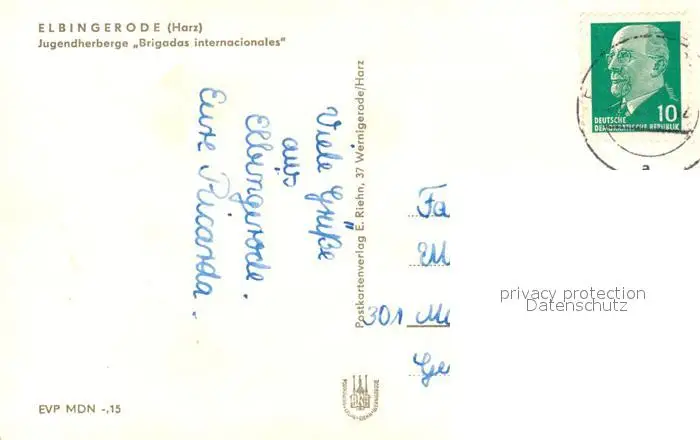 ELBINGERODE (Harz)
Jugendherberge „Brigadas internacionales"
10
DEUTSCHE
DEMOKRATISCHE REPUBLIK
Viele Grüße
aus
Elbingerode.
Eure Ricarda.
Postkartenverlag E. Riehn, 37 Wernigerode/Harz
Fa
M
301 M
Ge
privacy protection
Datenschutz
EVP MDN -,15